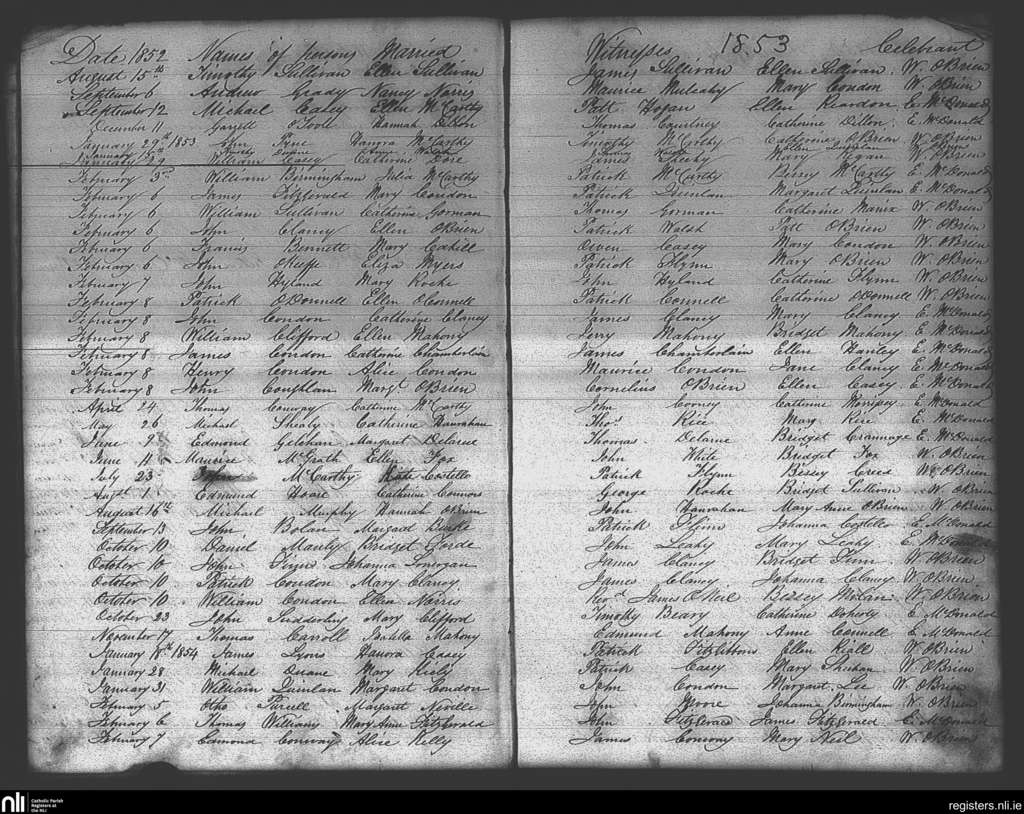 Date 1852 Names of persons Married
August 15th Timothy Sullivan Ellen Sullivan
September 6 Andrew Grady Nancy Norris
September 12 Michael Casey Ellen McCarthy
December 11 Garrett O'Toole Hannah Dillon
January 29th 1853 John Pyne Hanora McCarthy
January 29 William Casey Catherine Dore
February 3rd William Birmingham Julia McCarthy
February 6 James Fitzgerald Mary Condon
February 6 William Sullivan Catherine Gorman
February 6 John Clancy Ellen OBrien
February 6 Francis Bennett Mary Cahill
February 6 John OKeeffe Eliza Myers
February 7 John Hyland Mary Roche
February 8 Patrick ODonnell Ellen OConnell
February 8 John Condon Catherine Clancy
February 8 William Clifford Ellen Mahony
February 8 James Condon Catherine Chamberlain
February 8 Henry Condon Alice Condon
February 8 John Coughlan Margt. OBrien
April 24 Thomas Conway Catherine McCarthy
May 26 Michael Shealy Catherine Hanrahan
June 9 Edmond Gelehan Margaret Delarue
June 11 Maurice McGrath Ellen Fox
July 23 John McCarthy Kate Costello
Augst 1 Edmund Hoare Catherine Connors
August 16th Michael Murphy Hannah OBrien
September 13 John Bolan Margaret
October 10 Daniel Manly Bridget
October 10 John Johanna Lonergan
October 10 Patrick Condon Mary Clancy
October 10 William Condon Ellen Norris
October 23 John Mary Clifford
November 17 Thomas Carroll Isabella Mahony
January 18th 1854 James Lyons Hanora Casey
January 28 Michael Duane Mary Kiely
January 31 William Quinlan Margaret Condon
February 5 Otho Margaret Neville
February 6 Thomas Williams Mary Anne Fitzgerald
February 7 Edmond Conway Alice Kelly
Witnesses 1853 Celebrant
James Sullivan Ellen Sullivan W. OBrien
Maurice Mulcahy Mary Condon W. OBrien
Patt Hogan Ellen Reardon E. McDonald
Thomas Courtney Catherine Dillon E. McDonald
Timothy McCarthy Catherine OBrien W. OBrien
James Sheehy Mary Regan W. OBrien
Patrick McCarthy Bessy McCarthy E. McDonald
Patrick Quinlan Margaret Quinlan E. McDonald
Thomas Gorman Catherine W. OBrien
Patrick Walsh Patt OBrien W. OBrien
Owen Casey Mary Condon W. OBrien
Patrick Flynn Mary OBrien W. OBrien
John Hyland Catherine Flynn W. OBrien
Patrick Connell Catherine ODonnell W. OBrien
James Clancy Mary Clancy E. McDonald
Jerry Mahony Bridget Mahony E. McDonald
James Chamberlain Ellen Hanley E. McDonald
Maurice Condon Jane Clancy E. McDonald
Cornelius OBrien Ellen Casey E. McDonald
John Cooney Catherine Morrissey E. McDonald
Thos. Rice Mary Rice E. McDonald
Thomas Delarue Bridget E. McDonald
John White Bridget Fox W. OBrien
Patrick Flynn Bessy Creed W. OBrien
George Roche Bridget Sullivan W. OBrien
John Hanrahan Mary Anne OBrien W. OBrien
Patrick Johanna Costello E. McDonald
John Leahy Mary Leahy E. McDonald
James Clancy Bridget W. OBrien
James Clancy Johanna Clancy W. OBrien
Revd. James ONeil Bessy Molan W. OBrien
Timothy Beary Catherine Doherty E. McDonald
Edmund Mahony Anne Connell E. McDonald
Patrick Fitzgibbons Ellen W. OBrien
Patrick Casey Mary W. OBrien
John Condon Margaret Lee W. OBrien
John Johanna Birmingham W. OBrien
John Fitzgerald James Fitzgerald E. McDonald
James Conway Mary Neil W. OBrien
nli Catholic Parish Registers at the NLI
registers.nli.ie